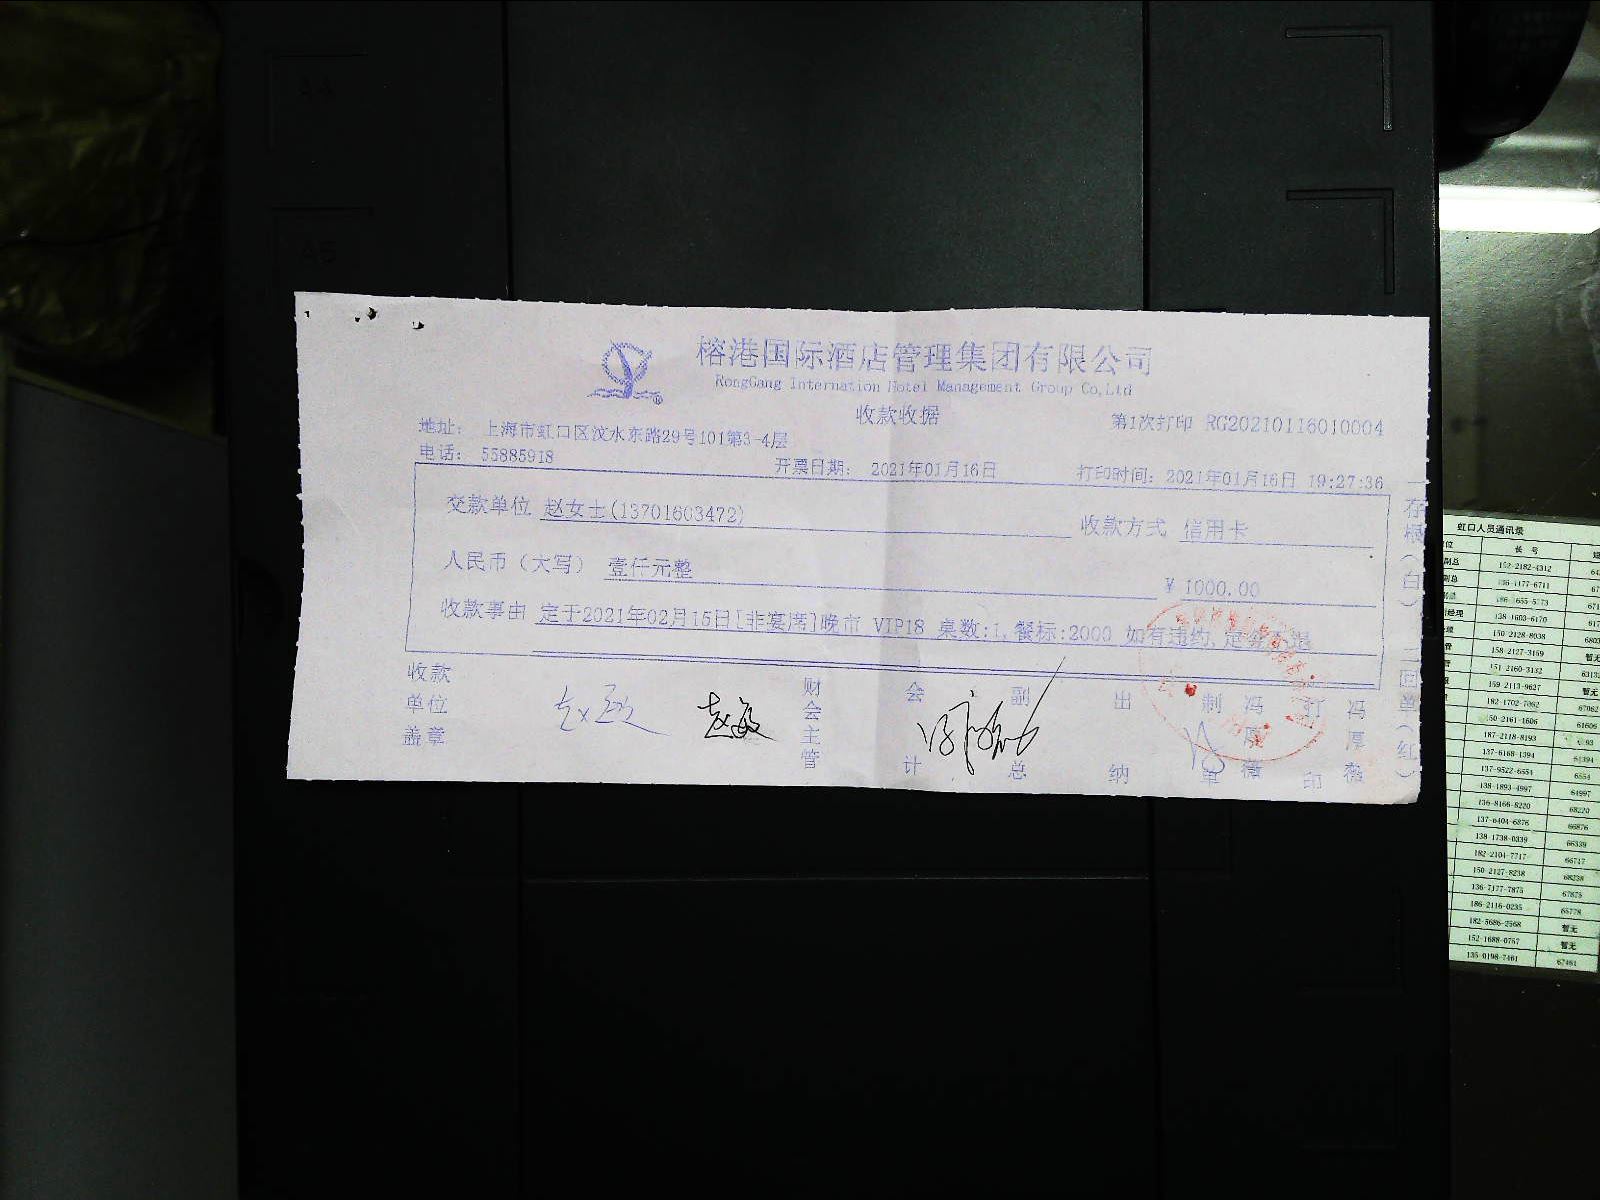 A4
A5
榕港国际酒店管理集团有限公司
RongGang Internation Hotel Management Group Co,Ltd
收款收据
第1次打印 RG20210116010004
地址： 上海市虹口区汶水东路29号101第3-4层
电话： 55885918
开票日期： 2021年01月16日
打印时间：2021年01月16日 19:27:36
交款单位 赵女士(13701603472)
收款方式 信用卡
人民币（大写） 壹仟元整
￥1000.00
收款事由 定于2021年02月15日[非宴席]晚市 VIP18 桌数:1,餐标:2000 如有违约,定金不退
收款单位盖章
赵敏
赵敏
财会主管
会计
副总
出纳
制单
冯厚薇
打印
冯厚薇
一存根(白)
二回单(红)
虹口人员通讯录
位
长 号
短
副总
152-2182-4312
副总
136-1177-6711
186-1655-5773
经理
138-1603-6170
150-2128-8038
158-2127-3159
暂无
151-2160-3132
159-2113-9627
暂无
182-1702-7062
67062
150-2161-1606
61606
187-2118-8193
137-6168-1394
61394
137-9522-6554
6554
138-1893-4997
64997
136-8166-8220
68220
137-6404-6876
66876
138-1738-0339
66339
182-2104-7717
66717
150-2127-8238
68238
136-7177-7875
67875
186-2116-0235
65778
182-5686-2568
暂无
152-1688-0757
暂无
135-0198-7461
67461